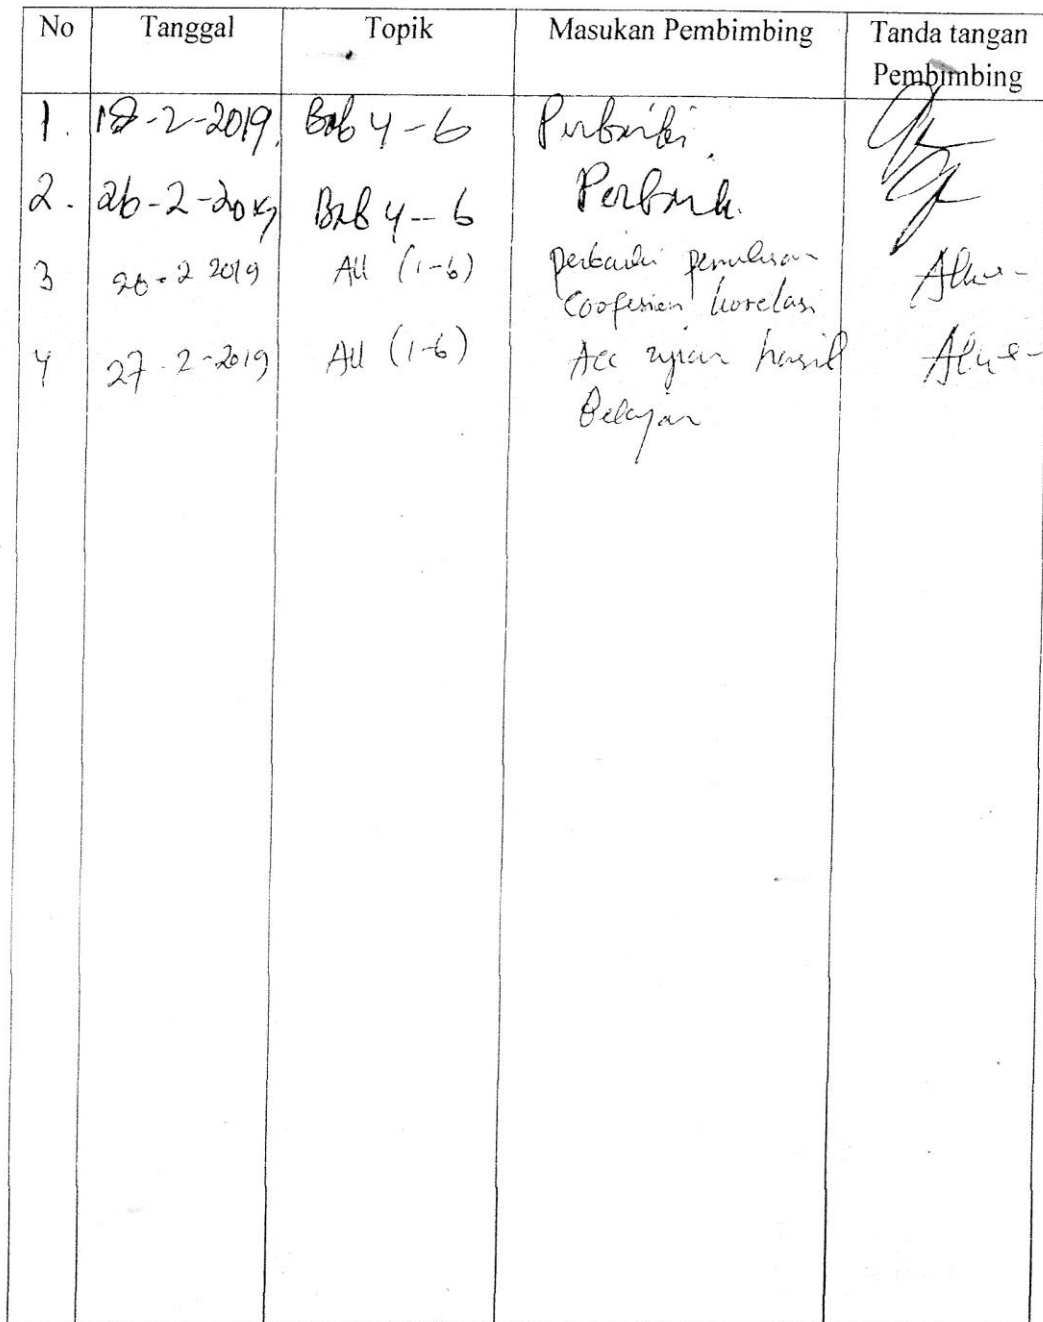 No Tanggal Topik Masukan Pembimbing Tanda tangan
Pembimbing
1. 18-2-2019 Bab 4-6 Perbaiki
2. 26-2-2019 Bab 4-6 Perbaiki
3 26-2 2019 All (1-6) perbaiki penulisan
Coofesien korelasi
4 27-2-2019 All (1-6) Acc ujian hasil
Belajar